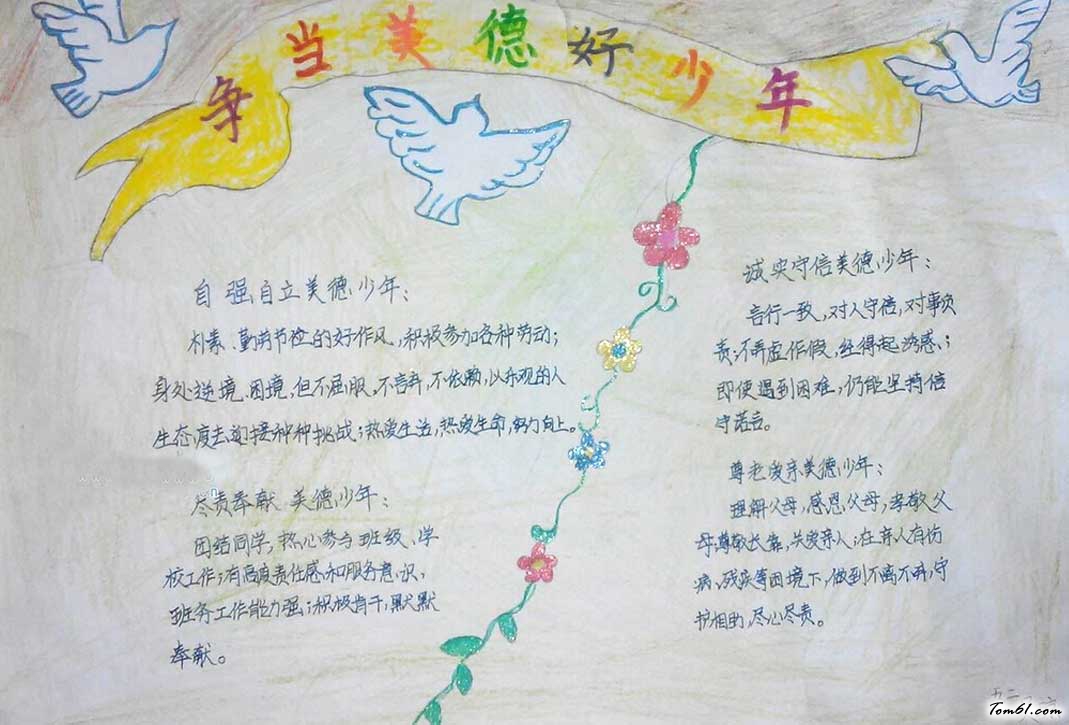 争当美德好少年
自强自立美德少年：
朴素、勤劳节俭的好作风，积极参加各种劳动；
身处逆境、困境，但不屈服，不言弃，不依赖，以乐观的人
生态度去迎接种种挑战；热爱生活，热爱生命，努力向上。
尽责奉献美德少年：
团结同学，热心参与班级、学
校工作；有高度责任感和服务意识，
班务工作能力强；积极肯干，默默
奉献。
诚实守信美德少年：
言行一致，对人守信，对事负
责；不弄虚作假，经得起诱惑；
即使遇到困难，仍能坚持信
守诺言。
尊老爱亲美德少年：
理解父母，感恩父母，孝敬父
母，尊敬长辈，关爱亲人；在亲人有伤
病、残疾等困境下，做到不离不弃，守
护相助，尽心尽责。
五二
Tom61.com